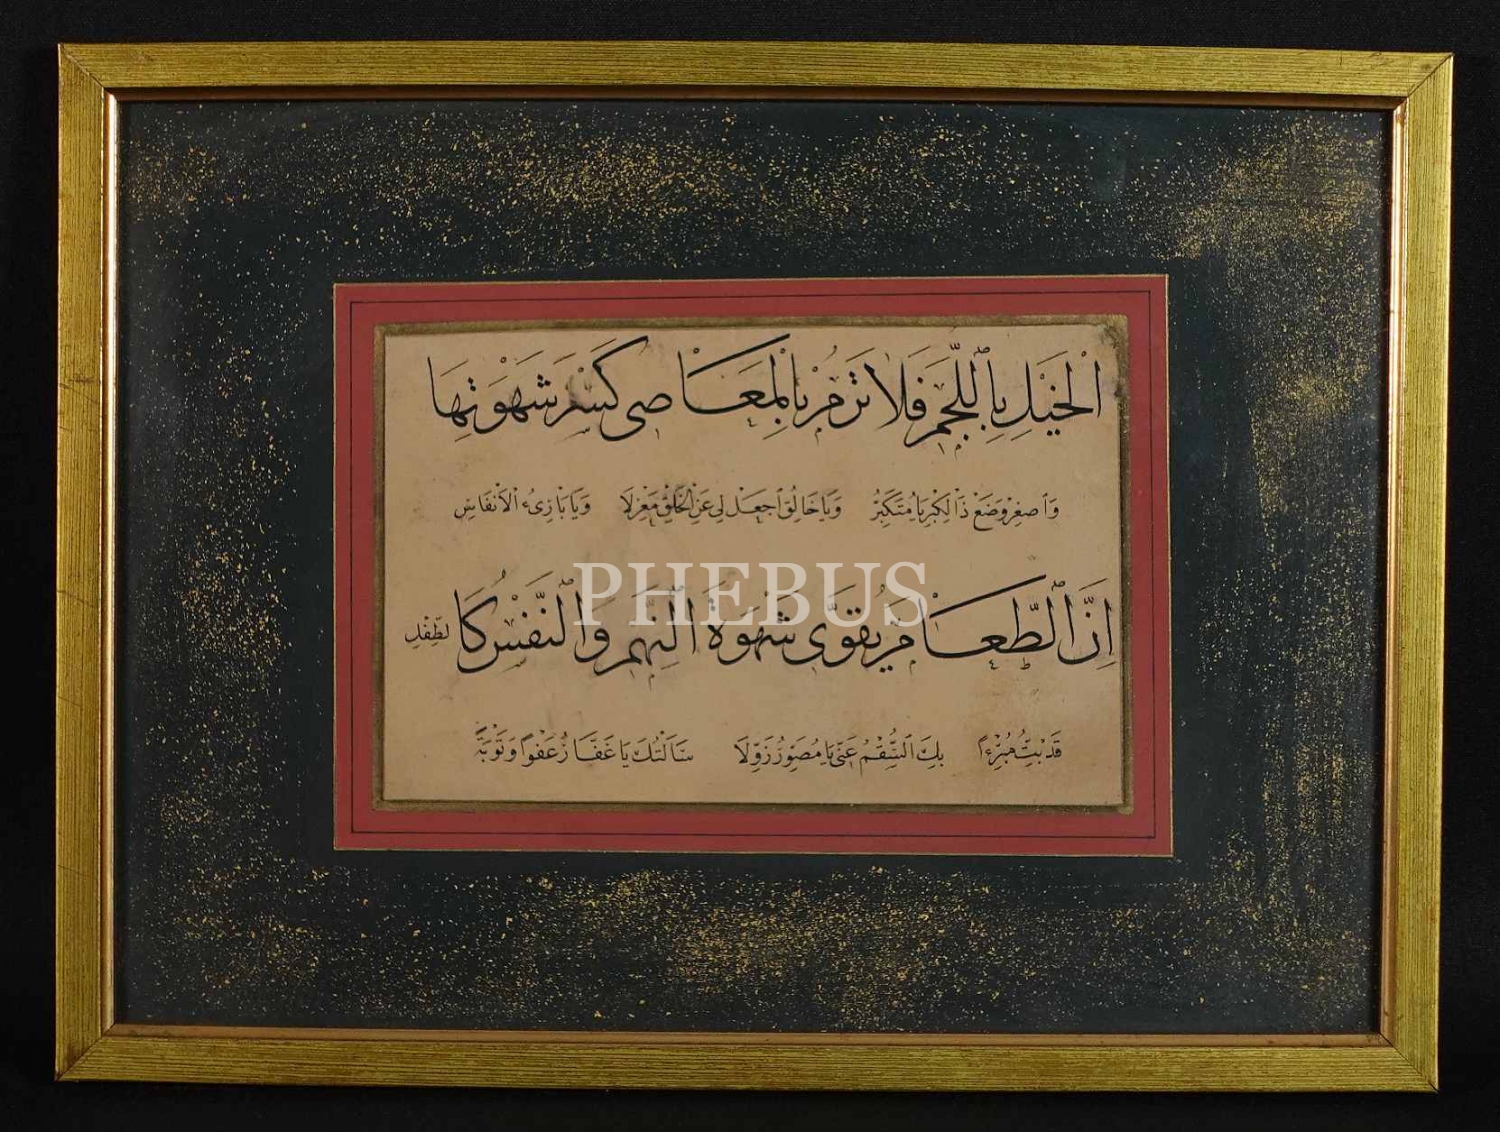 الْخَيْلِ بِاللُّجُمِ فَلَا تَرُمْ بِالْمَعَاصِى كَسْرَ شَهْوَتِهَا
وَاصْغِرْ وَضَعْ ذَا الْكِبْرِ يَا مُتَكَبِّرُ وَيَا خَالِقُ اجْعَلْ لِى عَنِ الْخَلْقِ مَعْزِلَا وَيَا بَارِئُ الْاَنْفَاسِ
PHEBUS
اِنَّ الطَّعَامَ يُقَوِّى شَهْوَةَ النَّهِمِ وَالنَّفْسُ كَالطِّفْلِ
قَدْ بِتُّ مُبْرِءًا بِكَ السُّقْمُ عَنِّى يَا مُصَوِّرُ زَوِّلَا سَاَلْتُكَ يَا غَفَّارُ عَفْوًا وَتَوْبَةً